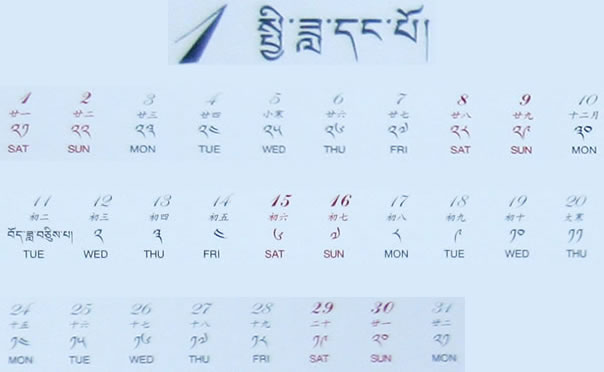 སྤྱི་ཟླ་དང་པོ།
1 2 3 4 5 6 7 8 9 10
廿一 廿二 廿三 廿四 小寒 廿六 廿七 廿八 廿九 十二月
༢༡ ༢༢ ༢༣ ༢༤ ༢༥ ༢༦ ༢༧ ༢༨ ༢༩ ༣༠
SAT SUN MON TUE WED THU FRI SAT SUN MON
11 12 13 14 15 16 17 18 19 20
初二 初三 初四 初五 初六 初七 初八 初九 初十 大寒
བོད་ཟླ་བཅིུས་པ། ༢ ༣ ༤ ༦ ༧ ༨ ༩ ༡༠ ༡༡
TUE WED THU FRI SAT SUN MON TUE WED THU
24 25 26 27 28 29 30 31
十五 十六 十七 十八 十九 二十 廿一 廿二
༡༤ ༡༥ ༡༦ ༡༧ ༡༨ ༡༩ ༢༠ ༢༡
MON TUE WED THU FRI SAT SUN MON